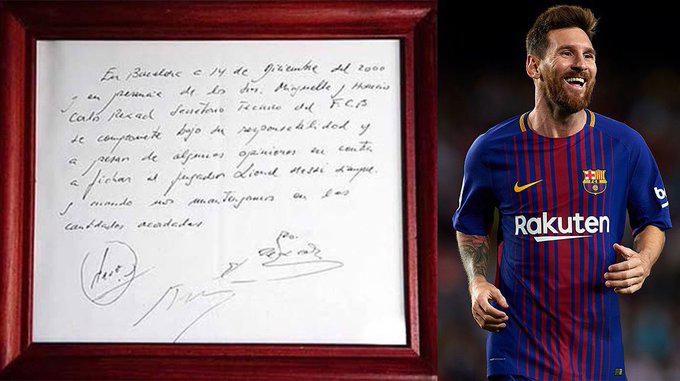 En Barcelona a 14 de Diciembre del 2000
y en presencia de los Srs. Minguella y Horacio
Carlos Rexach Secretario Tecnico del F.C.B
se compromete bajo su responsabilidad y
a pesar de algunas opiniones en contra
a fichar al jugador Lionel Messi siempre
y cuando nos mantengamos en las
cantidades acordadas
Rakuten